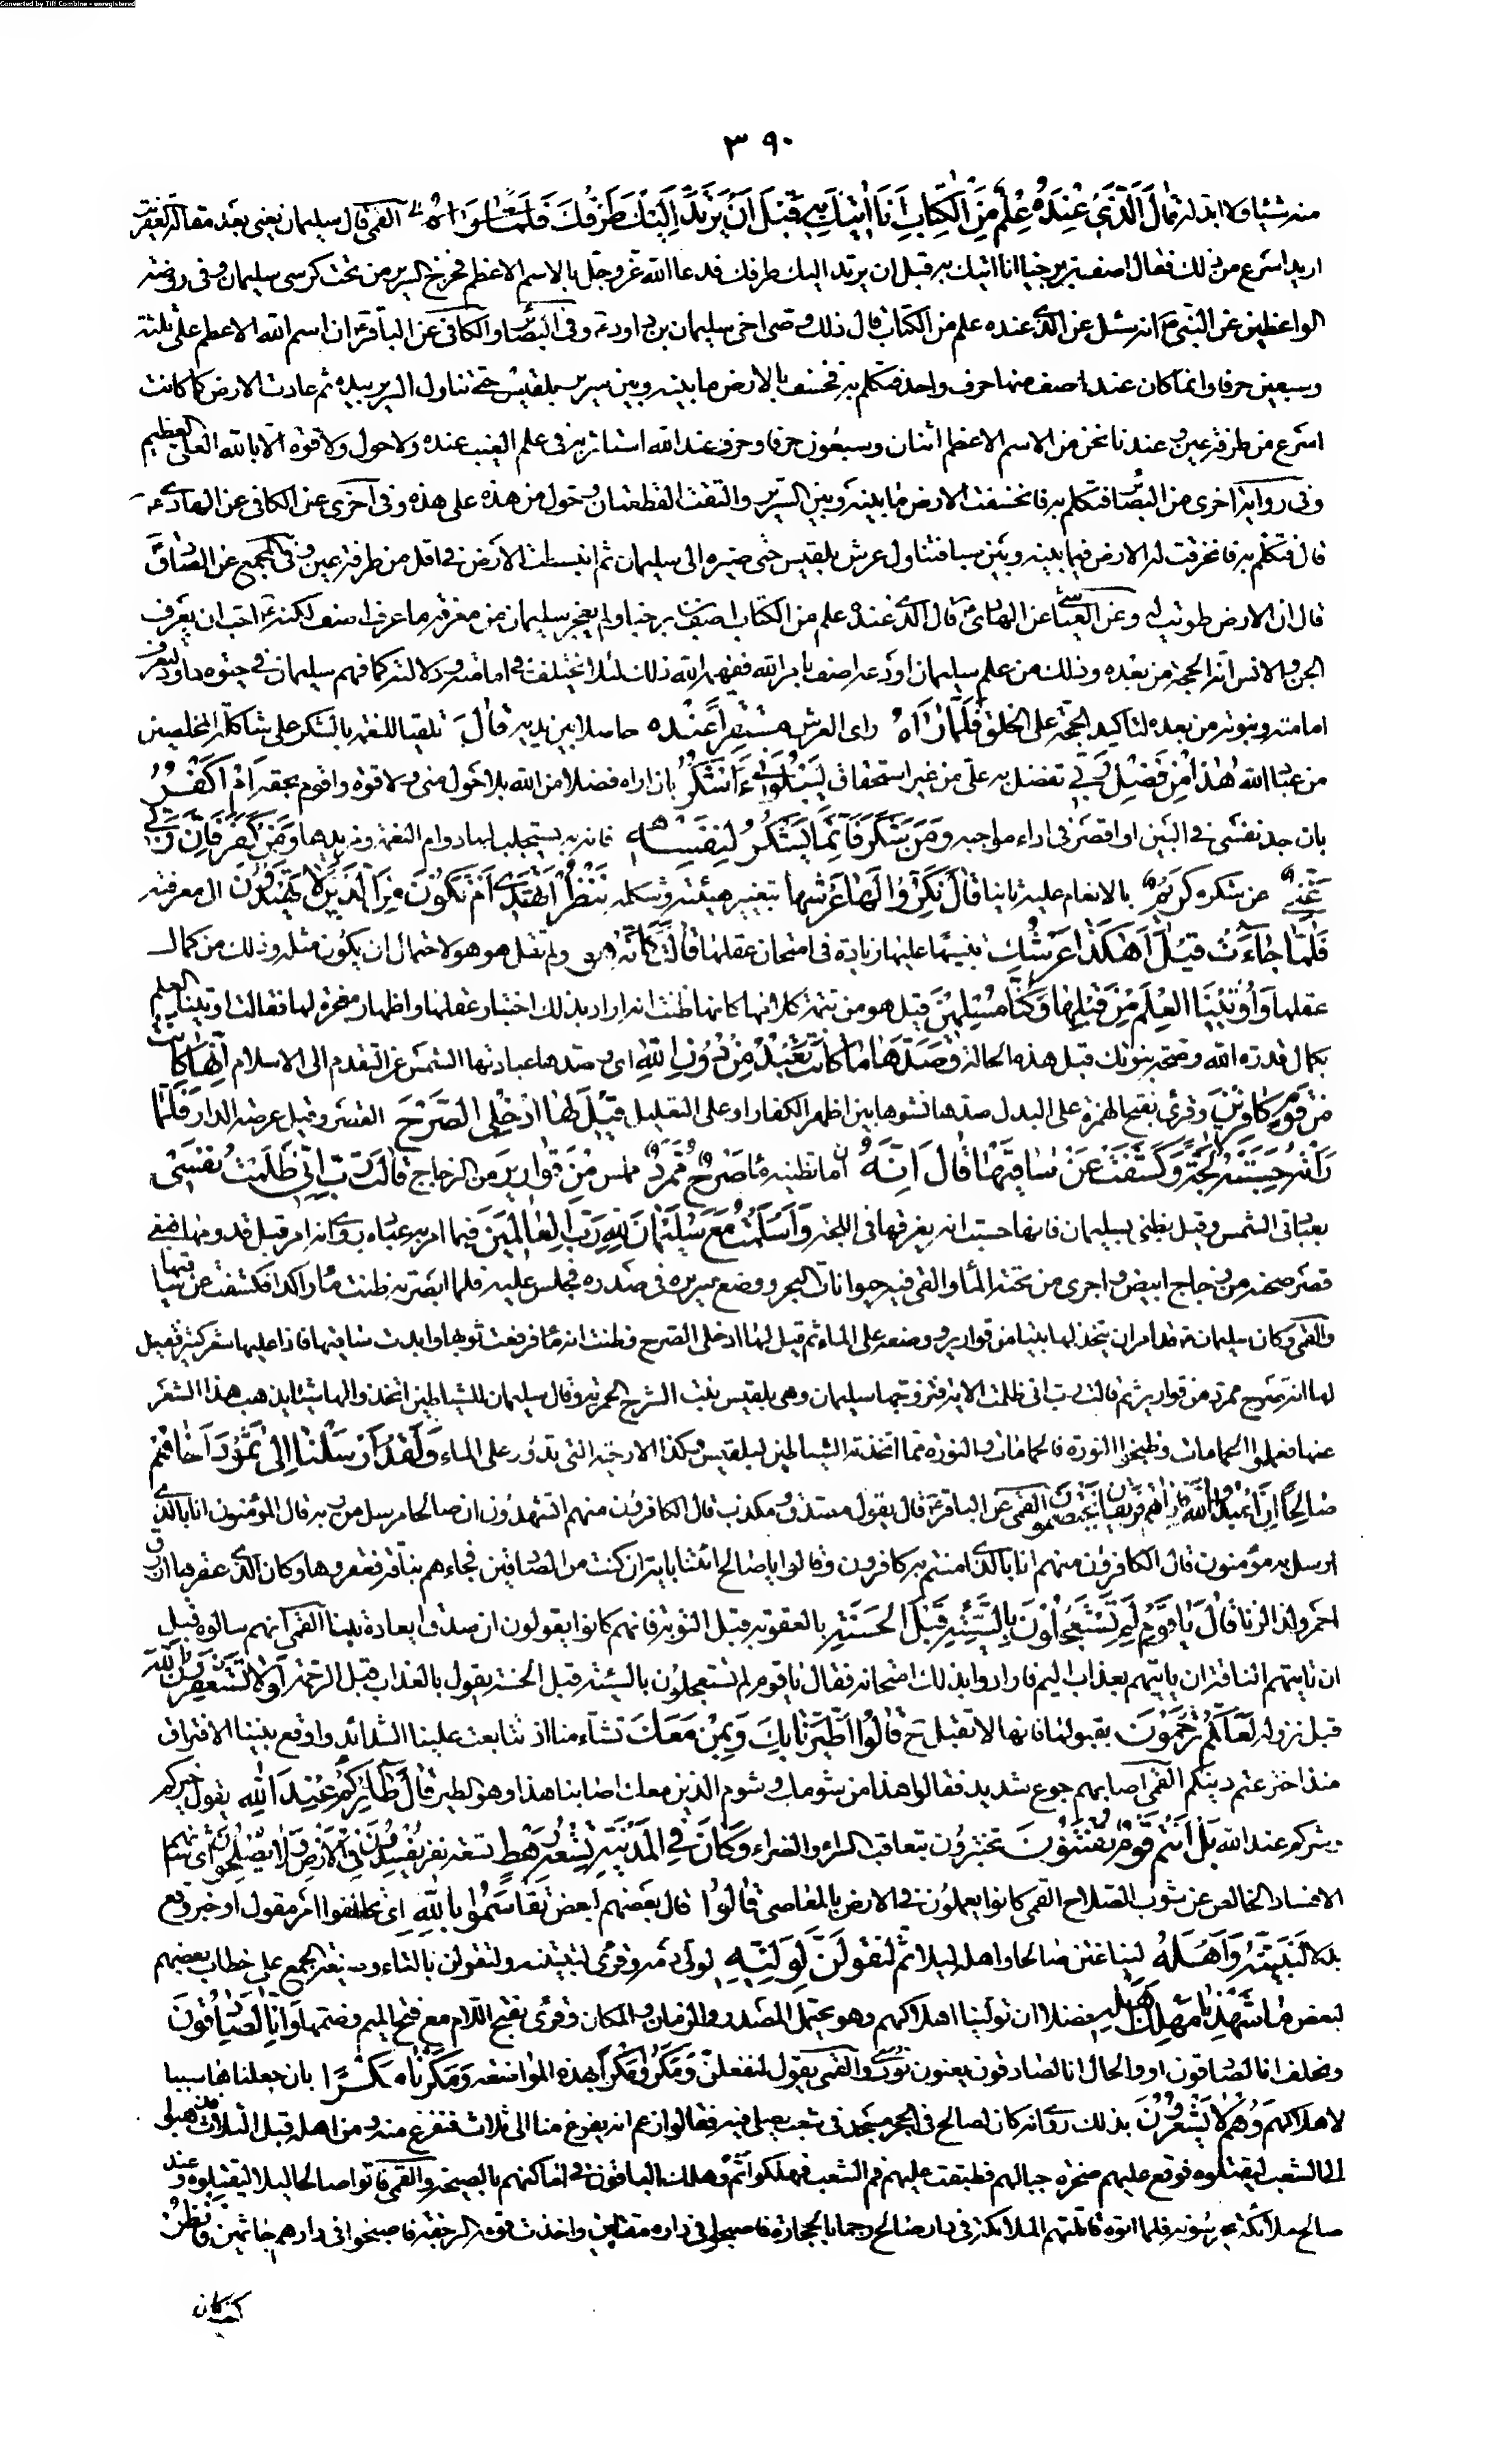 Converted by Tiff Combine - unregistered
٣٩٠
منه شيئا ولا ابتذله قال الذي عنده علم من الكتاب انا اتيك به قبل ان يرتد اليك طرفك فلما القمي قال سليمان يعني بعد مقالة العفريت
اريد اسرع من ذلك فقال اصف بن برخيا انا اتيك به قبل ان يرتد اليك طرفك فدعا الله عز وجل بالاسم الاعظم فخرج السرير من تحت كرسي سليمان وفي روضة
الواعظين عن النبي ص انه سئل عن الذي عنده علم من الكتاب قال ذلك وصي اخي سليمان بن داود ع وفي البصائر والكافي عن الباقر ع ان اسم الله الاعظم على ثلثة
وسبعين حرفا وانما كان عند اصف منها حرف واحد فتكلم به فخسف بالارض ما بينه وبين سرير بلقيس حتى تناول السرير بيده ثم عادت الارض كما كانت
اسرع من طرفة عين وعندنا نحن من الاسم الاعظم اثنان وسبعون حرفا وحرف عند الله استاثر به في علم الغيب عنده ولا حول ولا قوة الا بالله العلي العظيم
وفي رواية اخرى من البصائر فتكلم به فانخسفت الارض ما بينه وبين السرير والتفت القطعتان وحول من هذه على هذه وفي اخرى عن الكافي عن الهادي ع
قال فتكلم به فانخرقت له الارض فيما بينه وبين سبا فتناول عرش بلقيس حتى صيره الى سليمان ثم انبسطت الارض في اقل من طرفة عين وفي المجمع عن الصادق
قال ان الارض طويت له وعن العياشي عن الهادي ع قال الذي عنده علم من الكتاب اصف بن برخيا ولم يعجز سليمان عن معرفة ما عرف اصف لكنه ع احب ان يعرف
الجن والانس انه الحجة من بعده وذلك من علم سليمان اودعه اصف بامر الله ففهمه الله ذلك لئلا يختلف في امامته ودلالته كما فهم سليمان في حيوة داود لتعرف
امامته ونبوته من بعده لتاكيد الحجة على الخلق فلما راه راى العرش مستقرا عنده حاصلا بين يديه قال تلقيا للنعمة بالشكر على شاكلة المخلصين
من عباد الله هذا من فضل ربي تفضل به علي من غير استحقاق ليبلوني ءاشكر بان اراه فضلا من الله بلا حول مني ولا قوة واقوم بحقه ام اكفر
بان اجد نفسي في البين او اقصر في اداء مواجبه ومن شكر فانما يشكر لنفسه فانه به يستجلب لها دوام النعمة ومزيدها ومن كفر فان ربي
غني عن شكره كريم بالانعام عليه ثانيا قال نكروا لها عرشها بتغيير هيئته وشكله ننظر اتهتدي ام تكون من الذين لا يهتدون الى معرفته
فلما جاءت قيل اهكذا عرشك تشبيها عليها زيادة في امتحان عقلها قالت كانه هو ولم تقل هو هو لاحتمال ان يكون مثله وذلك من كمال
عقلها واوتينا العلم من قبلها وكنا مسلمين قيل هو من تتمة كلامها كانها ظنت انه اراد بذلك اختبار عقلها واظهار معجزة لها فقالت اوتينا العلم
بكمال قدرة الله وصحة نبوتك قبل هذه الحالة وصدها ما كانت تعبد من دون الله اي وصدها عبادتها الشمس عن التقدم الى الاسلام انها كانت
من قوم كافرين وقرئ بفتح الهمزة على البدل صدها نشوها بين اظهر الكفار او على التعليل قيل لها ادخلي الصرح القصر وقيل عرصة الدار فلما
راته حسبته لجة وكشفت عن ساقيها قال انه ان ما تظنينه ماء صرح ممرد مملس من قوارير من الزجاج قالت رب اني ظلمت نفسي
بعبادتي الشمس وقيل بظني بسليمان فانها حسبت انه يغرقها في اللجة واسلمت مع سليمان لله رب العالمين فيما امر به عباده روي انه امر قبل قدومها فبني
قصر صحنه من زجاج ابيض واجرى من تحته الماء والقي فيه حيوانات البحر ووضع سريره في صدره فجلس عليه فلما ابصرته ظنت ماء راكدا فكشفت عن ساقيها
والقمي وكان سليمان ع قد امر ان يتخذ لها بيتا من قوارير ووضعه على الماء ثم قيل لها ادخلي الصرح وظنت انه ماء فرفعت ثوبها وابدت ساقيها فاذا عليها شعر كثير فقيل
لها انه صرح ممرد من قوارير ثم قالت رب اني ظلمت الاية فتزوجها سليمان وهي بلقيس بنت الشرح الحميرية وقال سليمان للشياطين اتخذوا لها شيئا يذهب هذا الشعر
عنها فعملوا الحمامات وطبخوا النورة فالحمامات والنورة مما اتخذته الشياطين لبلقيس وكذا الارحية التي تدور على الماء ولقد ارسلنا الى ثمود اخاهم
صالحا ان اعبدوا الله فاذا هم فريقان يختصمون القمي عن الباقر ع قال يقول مصدق ومكذب قال الكافرون منهم اتشهدون ان صالحا مرسل من ربه قال المؤمنون انا بالذي
ارسل به مؤمنون قال الكافرون منهم انا بالذي امنتم به كافرون وقالوا يا صالح ائتنا باية ان كنت من الصادقين فجاءهم بناقة فعقروها وكان الذي عقرها ازرق
احمر ولد الزنا قال يا قوم لم تستعجلون بالسيئة قبل الحسنة بالعقوبة قبل التوبة فانهم كانوا يقولون ان صدق ايعاده تبنا القمي انهم سالوه قبل
ان تاتيهم الناقة ان ياتيهم بعذاب اليم فارادوا بذلك امتحانه فقال يا قوم لم تستعجلون بالسيئة قبل الحسنة يقول بالعذاب قبل الرحمة لولا تستغفرون الله
قبل نزوله لعلكم ترحمون بقبولها فانها لا تقبل ح قالوا اطيرنا بك وبمن معك تشاءمنا اذ تتابعت علينا الشدائد واوقع بيننا الافتراق
منذ اخترعتم دينكم القمي اصابهم جوع شديد فقالوا هذا من شومك وشوم الذين معك اصابنا هذا وهو الطير قال طائركم عند الله يقول خيركم
وشركم عند الله بل انتم قوم تفتنون تختبرون بتعاقب السراء والضراء وكان في المدينة تسعة رهط تسعة نفر يفسدون في الارض ولا يصلحون اي شانهم
الافساد الخالص عن شوب الصلاح القمي كانوا يعملون في الارض بالمعاصي قالوا قال بعضهم لبعض تقاسموا بالله اي تحالفوا امر مقول او خبر وقع
بدلا لنبيتنه واهله لنباغتن صالحا واهله ليلا ثم لنقولن لوليه لولي دمه وقرئ لتبيتنه ولتقولن بالتاء وصيغة الجمع على خطاب بعضهم
لبعض ما شهدنا مهلك اهله فضلا ان تولينا اهلاكهم وهو يحتمل المصدر والزمان والمكان وقرئ بفتح اللام مع فتح الميم وضمها وانا لصادقون
ونحلف انا لصادقون او والحال انا لصادقون يعنون نوري والقمي يقول لنفعلن ومكروا مكرا بهذه المواضعة ومكرنا مكرا بان جعلناها سببا
لاهلاكهم وهم لا يشعرون بذلك روي انه كان لصالح في الحجر مسجد في شعب يصلي فيه فقالوا زعم انه يفرغ منا الى ثلاث فنفرغ منه ومن اهله قبل الثلاث فذهبوا
الى الشعب ليقتلوه فوقع عليهم صخرة حيالهم فطبقت عليهم فم الشعب فهلكوا ثم وهلك الباقون في اماكنهم بالصيحة والقمي فاتوا صالحا ليلا ليقتلوه وعند
صالح ملائكة يحرسونه فلما اتوه قاتلتهم الملائكة في دار صالح رجما بالحجارة فاصبحوا في داره مقتلين واخذت قومه الرجفة فاصبحوا في دارهم جاثمين فانظر
كيف كان